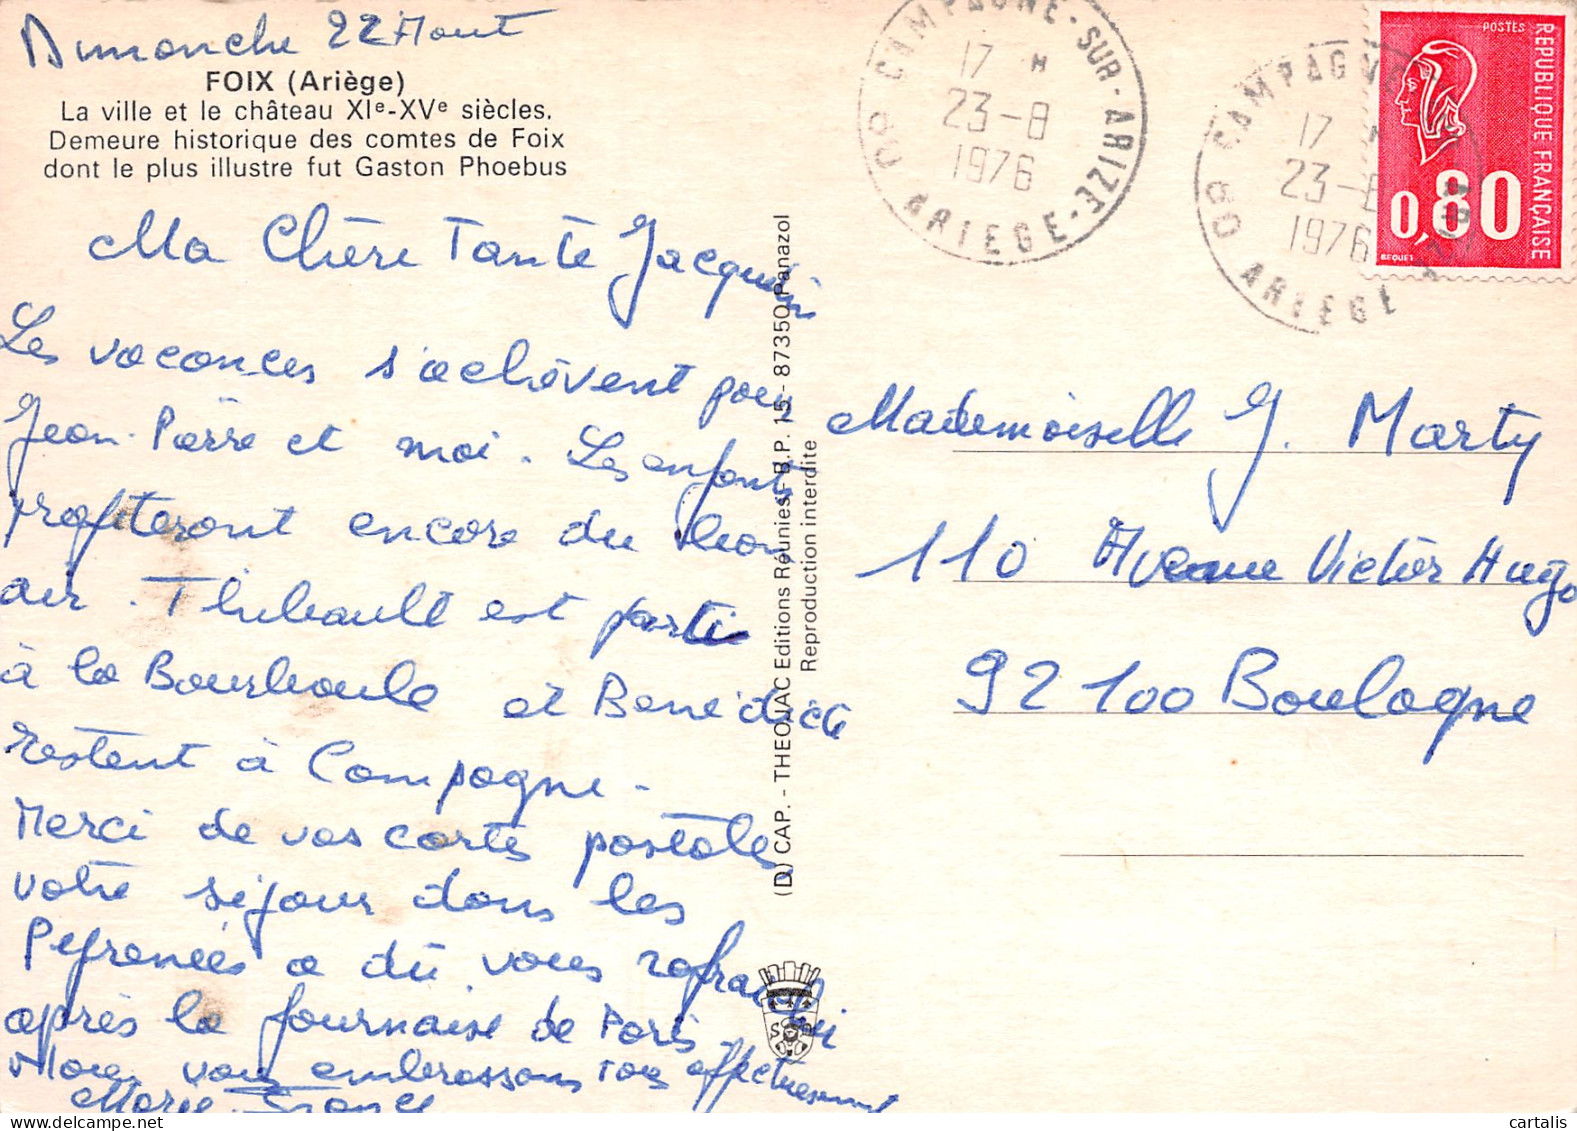 Dimanche 22 Aout
FOIX (Ariège)
La ville et le château XIe-XVe siècles.
Demeure historique des comtes de Foix
dont le plus illustre fut Gaston Phoebus
Ma Chère Tante Jacqueline
Les vacances s'achèvent pour
Jean-Pierre et moi. Les enfants
profiteront encore du bon
air. Thibault est parti
à la Bourboule et Bénédicte
restent à Campagne.
Merci de vos cartes postales
votre séjour dans les
Pyrénées a dû vous rafraichir
après la fournaise de Paris.
Nous vous embrassons tous affectueusement
Marie-France
(D) CAP. - THEOJAC Editions Réunies - B.P. 15 - 87350 Panazol
Reproduction interdite
CAMPAGNE-SUR-ARIZE
17 H
23-8
1976
ARIEGE
CAMPAGNE
17 H
23-8
1976
ARIEGE
POSTES
REPUBLIQUE FRANÇAISE
0,80
BEQUET
Mademoiselle J. Marty
110 Avenue Victor Hugo
92100 Boulogne
cartalis
delcampe.net